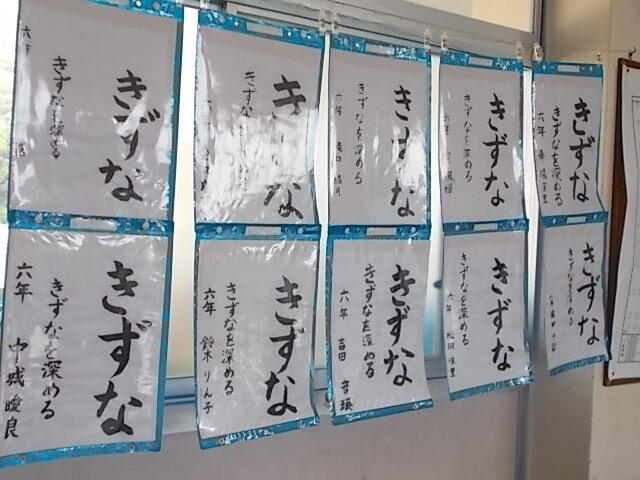 きずな
きずなを深める
六年
きずな
きずな
きずなを深める
六年
きずな
きずなを深める
六年
きずな
きずなを深める
六年
きずな
きずなを深める
六年 中城 暖良
きずな
きずなを深める
六年 鈴木 りん子
きずな
きずなを深める
六年 吉田 音瑛
きずな
きずなを深める
六年 松岡
きずな
きずなを深める